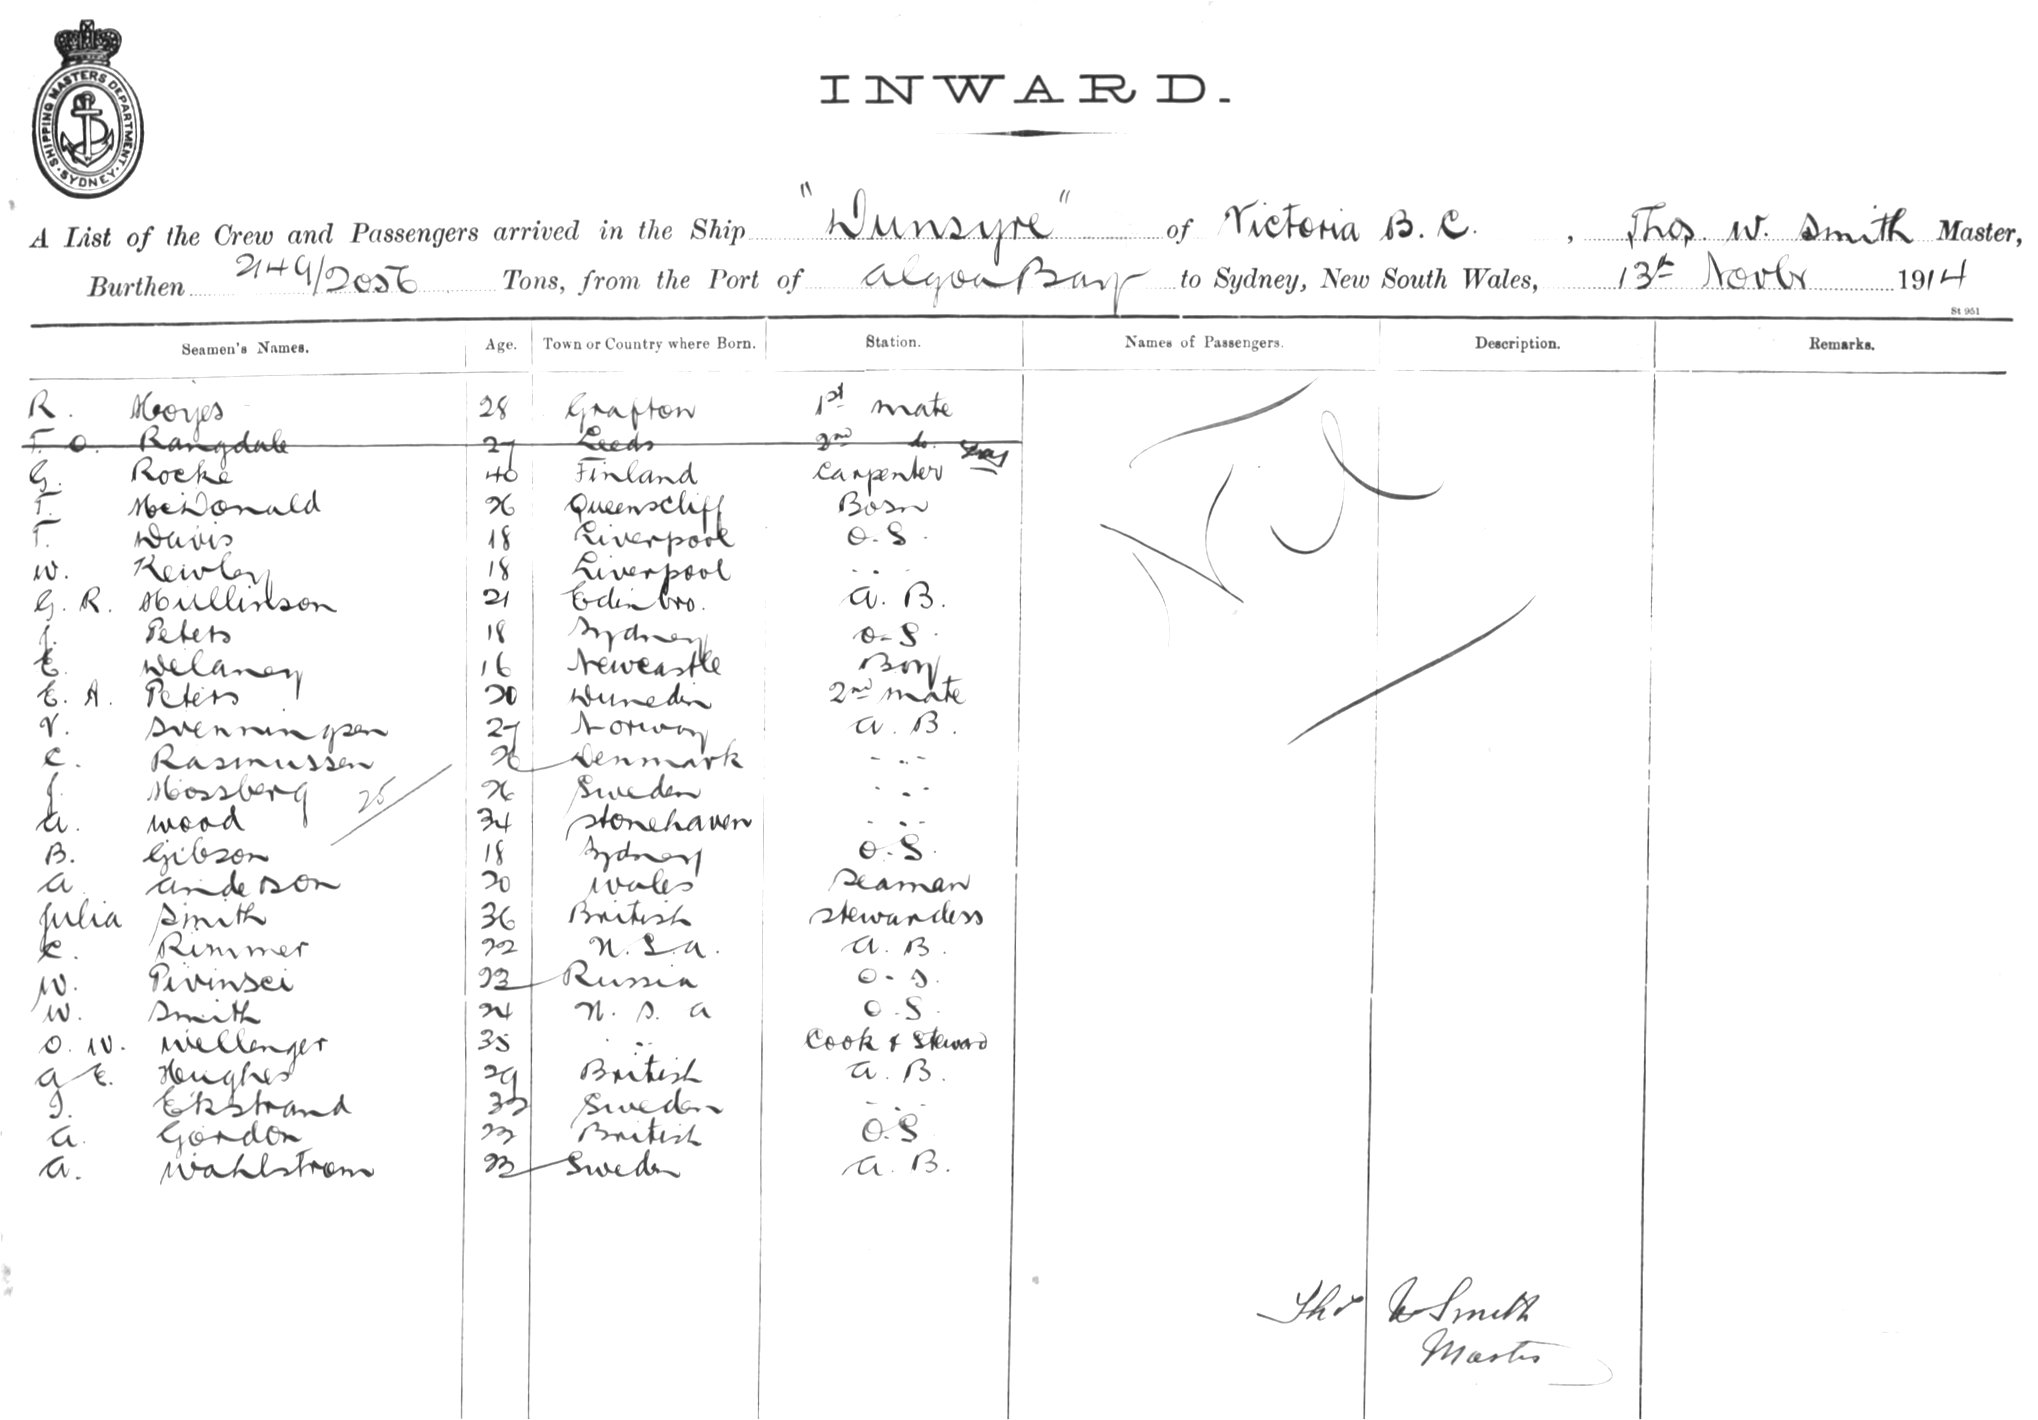 SHIPPING MASTERS DEPARTMENT · SYDNEY ·
INWARD.
A List of the Crew and Passengers arrived in the Ship "Dunsyre" of Victoria B. C. , Thos. W. Smith Master,
Burthen 2149/2056 Tons, from the Port of Algoa Bay to Sydney, New South Wales, 13th Novbr 1914
St 951
Seamen's Names. Age. Town or Country where Born. Station. Names of Passengers. Description. Remarks.
R. Hoyes 28 Grafton 1st mate
T. O. Rangdale 27 Leeds 2nd do.
G. Rocke 40 Finland Carpenter
T. McDonald 26 Queenscliff Bosn
T. Davis 18 Liverpool O. S.
W. Kewley 18 Liverpool " "
G. R. Hullinson 21 Edinbro. A. B.
J. Peters 18 Sydney O. S.
E. Delaney 16 Newcastle Boy
E. A. Peters 20 Dunedin 2nd mate
V. Svenningsen 27 Norway A. B.
C. Rasmussen 26 Denmark " "
J. Mossberg 26 Sweden " "
25
A. Wood 34 Stonehaven " "
B. Gibson 18 Sydney O. S.
A. Anderson 20 Wales Seaman
Julia Smith 36 British Stewardess
C. Rimmer 22 U. S. A. A. B.
W. Pivinsci 23 Russia O. S.
W. Smith 24 U. S. A O. S.
O. W. Wellenger 35 " " Cook & Steward
A E. Hughes 29 British A. B.
I. Ekstrand 33 Sweden " "
A. Gordon 23 British O. S
A. Wahlstrom 23 Sweden A. B.
Nil
Thos W Smith
Master